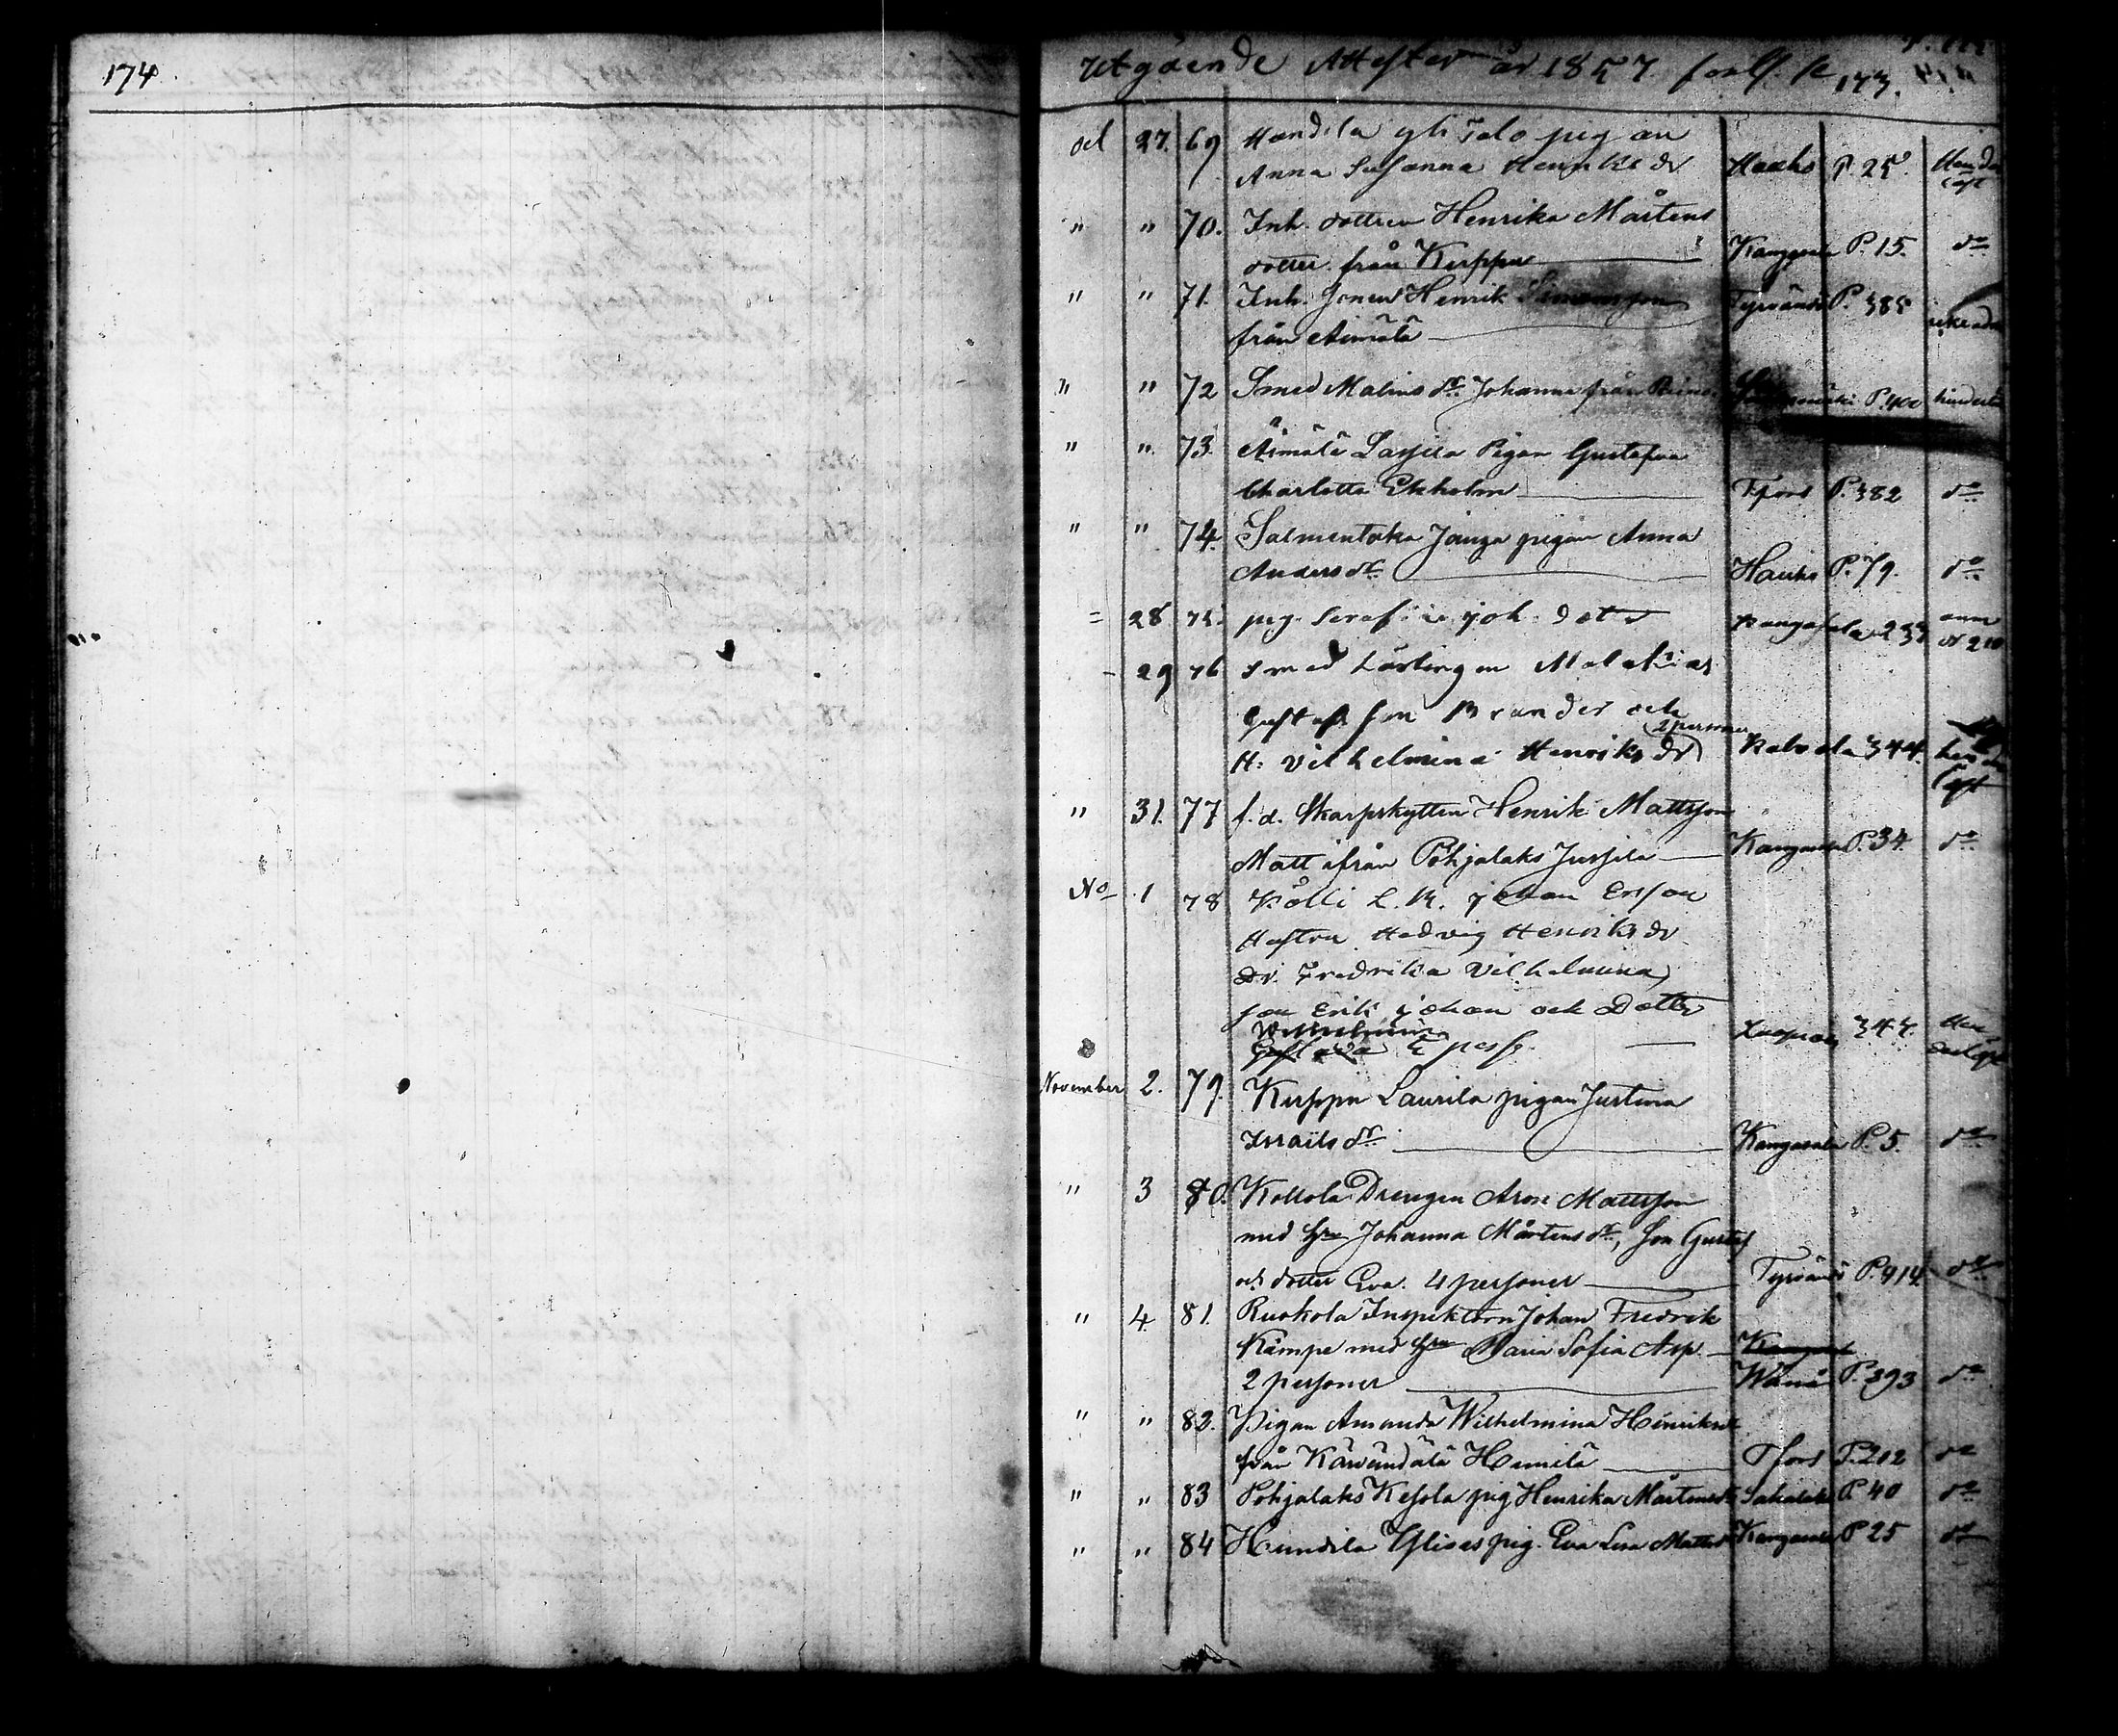 174.
Utgående Attester år 1857. 173.
oct 27. 69 Handila yli Talo pigan
Anna Susanna Henriks dr P. 25.
" " 70. Inh. dottren Henrika Mårtens
dotter från Kerppu Kangasala P. 15. do
" " 71. Inh. Sonen Henrik Simonsson Tyrvändö P. 385
från Aimälä
" " 72 Smed Malins dr Johanna från P. 400 hinderlös
" " 73. Aimälä Lassila Pigan Gustafva
Charlotta Ekholm Tfors P. 382 do
" " 74. Salmentaka Jauga pigan Anna
Anders dr Hauho P. 79. do
= 28 75. pig. Serafia joh. dotter Kangasala 237
- 29 76 smed Lärlingen Malakias
Gustafson Brander och
2 personer
H: Vilhelmina Henriks dr 344.
" 31. 77 f.d. Skarpskytten Henrik Mattsson
Matt ifrån Pohjalaks Jussila Kangasala P. 34. do
No 1 78 Kölli L. K. johan Erson
Hustru Hedvig Henriks dr
Dr. Fredrika Vilhelmina
son Erik johan och Dotter
Vilhelmina
Gustava 5 pers. 347.
November 2. 79. Kerppu Laurila pigan Justina
Israils dr Kangasala P. 5. do
" 3 80. Kollola Drengen Aron Mattsson
med hu Johanna Mårtens dr, Son Gustaf
och dotter Eva. 4 personer Tyrvändö P. 414 do
" 4. 81. Ruokola Inspektorn Johan Fredrik
Kämpe med hu Maria Sofia Asp. Kangasal
2 personer Wånå P. 393 do
" " 82. Pigan Amanda Wilhelmina Henriksdr
från Kärvändälä Heimilä Tfors P. 212 do
" " 83 Pohjalaks Kesola pig Henrika Mårtensdr Sahalaks P. 40 do
" " 84 Hundila Ylises pig. Eva Lisa Mattsdr Kangasala P. 25 do